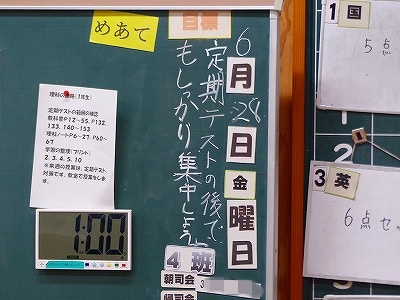 めあて
目標
定期テストの後で
もしっかり集中しよう
6月28日金曜日
4班
朝司会 3
理科の連絡(1年生)
定期テストの範囲の確認
教科書P12~55、P132、
133、140~153
理科ノートP6~27、P60~
67
学習の整理(プリント)
2、3、4、5、10
※来週の授業は、定期テスト
対策です。教室で授業をしま
す。
1:00
1国
5点
2
3英
6点セ